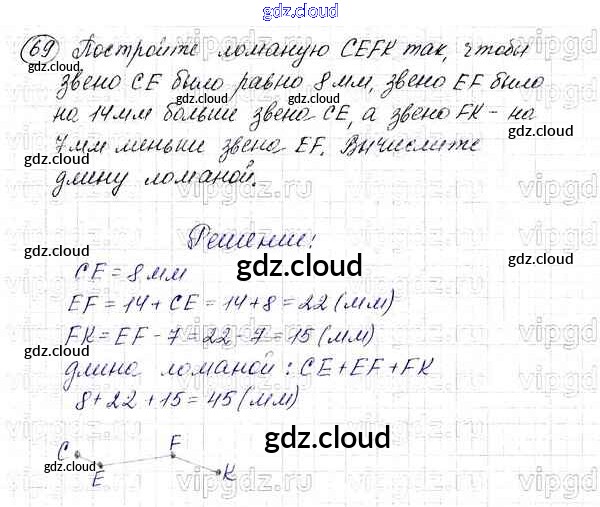 gdz.cloud
69 Постройте ломаную CEFK так, чтобы
звено CE было равно 8 мм, звено EF было
на 14 мм больше звена CE, а звено FK - на
7 мм меньше звена EF. Вычислите
длину ломаной.
Решение:
CE = 8 мм
EF = 14 + CE = 14 + 8 = 22 (мм)
FK = EF - 7 = 22 - 7 = 15 (мм)
длина ломаной: CE + EF + FK
8 + 22 + 15 = 45 (мм)
C E F K
gdz.cloud
gdz.cloud
gdz.cloud
gdz.cloud
gdz.cloud
gdz.cloud
gdz.cloud
gdz.cloud
gdz.cloud
gdz.cloud
gdz.cloud
vipgdz.ru